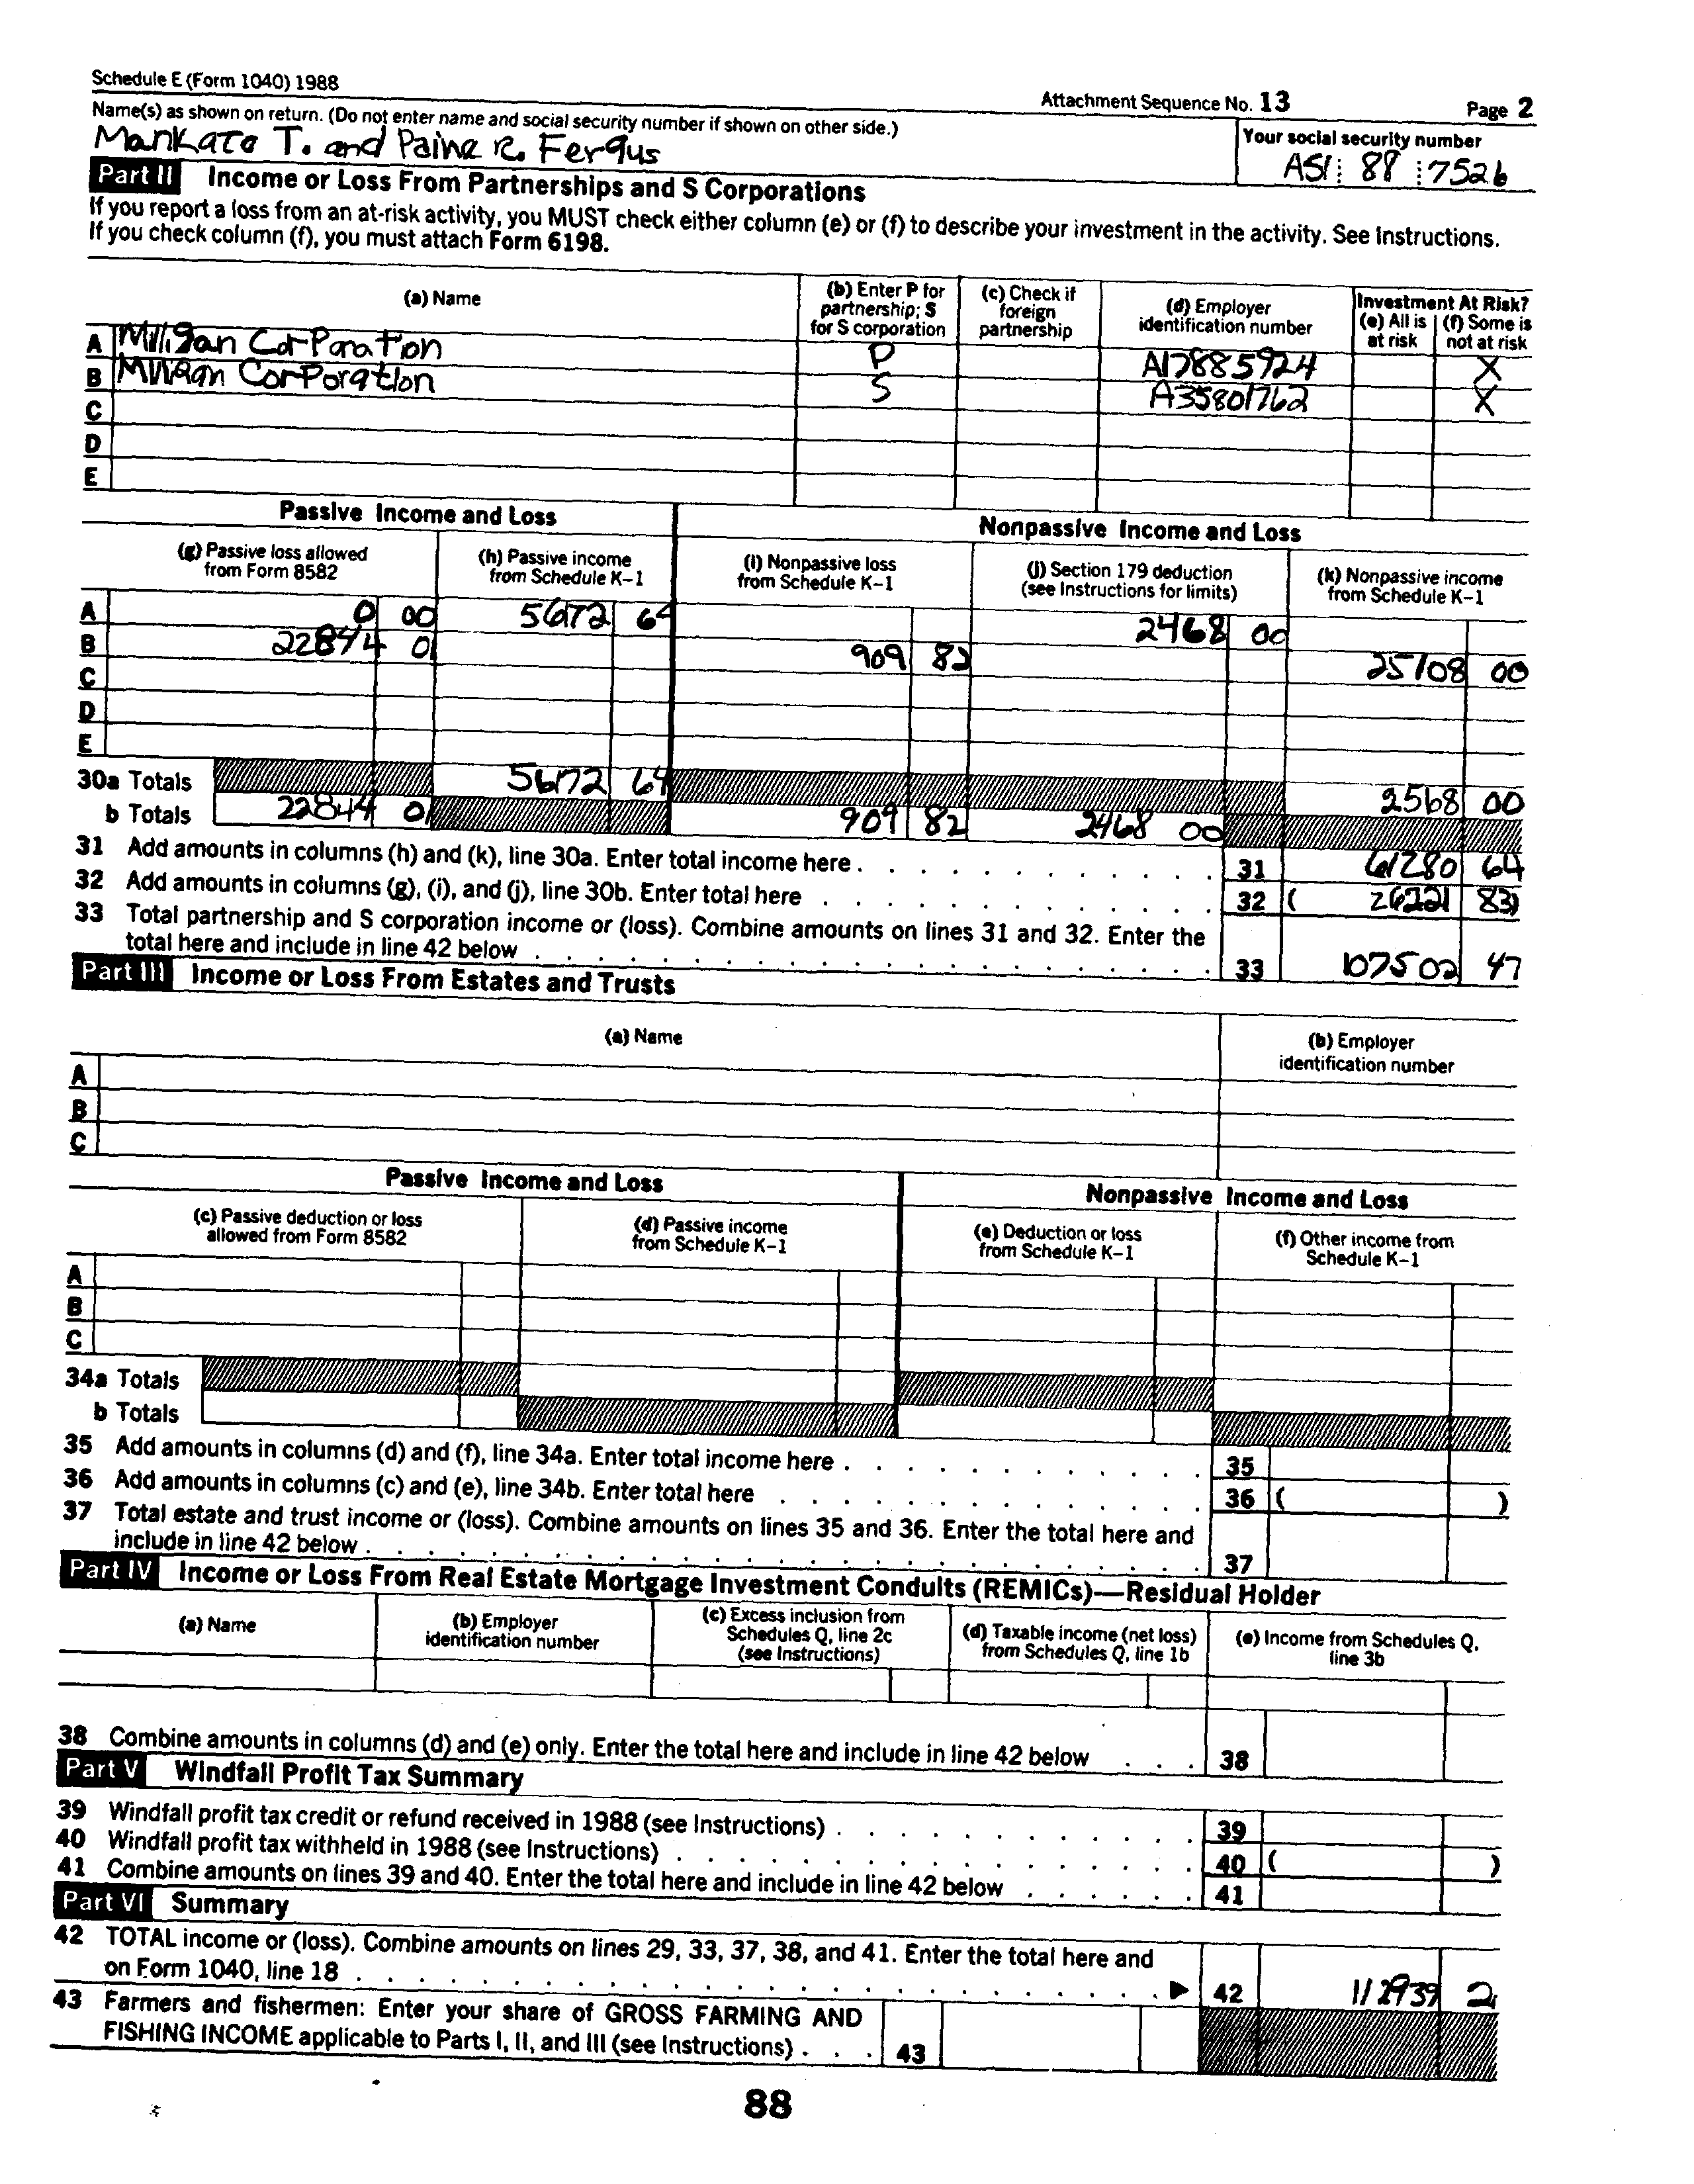 Schedule E (Form 1040) 1988
Attachment Sequence No. 13
Page 2
Name(s) as shown on return. (Do not enter name and social security number if shown on other side.)
Your social security number
Mankato T. and Paine R. Fergus
AS1 88 7526
Part II Income or Loss From Partnerships and S Corporations
If you report a loss from an at-risk activity, you MUST check either column (e) or (f) to describe your investment in the activity. See Instructions.
If you check column (f), you must attach Form 6198.
(a) Name
(b) Enter P for partnership; S for S corporation
(c) Check if foreign partnership
(d) Employer identification number
Investment At Risk?
(e) All is at risk
(f) Some is not at risk
A Milligan Corporation P A17885924 X
B Milligan Corporation S A35801762 X
C
D
E
Passive Income and Loss
Nonpassive Income and Loss
(g) Passive loss allowed from Form 8582
(h) Passive income from Schedule K-1
(i) Nonpassive loss from Schedule K-1
(j) Section 179 deduction (see Instructions for limits)
(k) Nonpassive income from Schedule K-1
A 0 00 5672 64 2468 00
B 22844 01 909 82 25108 00
C
D
E
30a Totals 5672 64 2568 00
b Totals 22844 01 909 82 2468 00
31 Add amounts in columns (h) and (k), line 30a. Enter total income here . 31 61280 64
32 Add amounts in columns (g), (i), and (j), line 30b. Enter total here 32 ( 26221 83)
33 Total partnership and S corporation income or (loss). Combine amounts on lines 31 and 32. Enter the
total here and include in line 42 below 33 107502 47
Part III Income or Loss From Estates and Trusts
(a) Name
(b) Employer identification number
A
B
C
Passive Income and Loss
Nonpassive Income and Loss
(c) Passive deduction or loss allowed from Form 8582
(d) Passive income from Schedule K-1
(e) Deduction or loss from Schedule K-1
(f) Other income from Schedule K-1
A
B
C
34a Totals
b Totals
35 Add amounts in columns (d) and (f), line 34a. Enter total income here . 35
36 Add amounts in columns (c) and (e), line 34b. Enter total here 36 ( )
37 Total estate and trust income or (loss). Combine amounts on lines 35 and 36. Enter the total here and
include in line 42 below . 37
Part IV Income or Loss From Real Estate Mortgage Investment Conduits (REMICs)—Residual Holder
(a) Name
(b) Employer identification number
(c) Excess inclusion from Schedules Q, line 2c (see Instructions)
(d) Taxable income (net loss) from Schedules Q, line 1b
(e) Income from Schedules Q, line 3b
38 Combine amounts in columns (d) and (e) only. Enter the total here and include in line 42 below 38
Part V Windfall Profit Tax Summary
39 Windfall profit tax credit or refund received in 1988 (see Instructions) . 39
40 Windfall profit tax withheld in 1988 (see Instructions) . 40 ( )
41 Combine amounts on lines 39 and 40. Enter the total here and include in line 42 below 41
Part VI Summary
42 TOTAL income or (loss). Combine amounts on lines 29, 33, 37, 38, and 41. Enter the total here and
on Form 1040, line 18 . ▶ 42 112939 2
43 Farmers and fishermen: Enter your share of GROSS FARMING AND
FISHING INCOME applicable to Parts I, II, and III (see Instructions) . 43
88